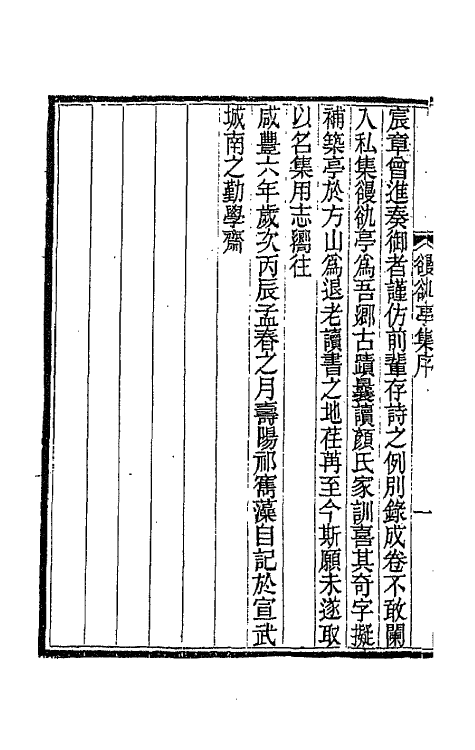 宸章曾進奏御者謹仿前輩存詩之例別錄成卷不敢闌
入私集䜱䜪亭爲吾鄉古蹟曩讀顏氏家訓喜其奇字擬
補築亭於方山爲退老讀書之地荏苒至今斯願未遂取
以名集用志嚮往
咸豐六年歲次丙辰孟春之月壽陽祁寯藻自記於宣武
城南之勤學齋
䜱䜪亭集序
一